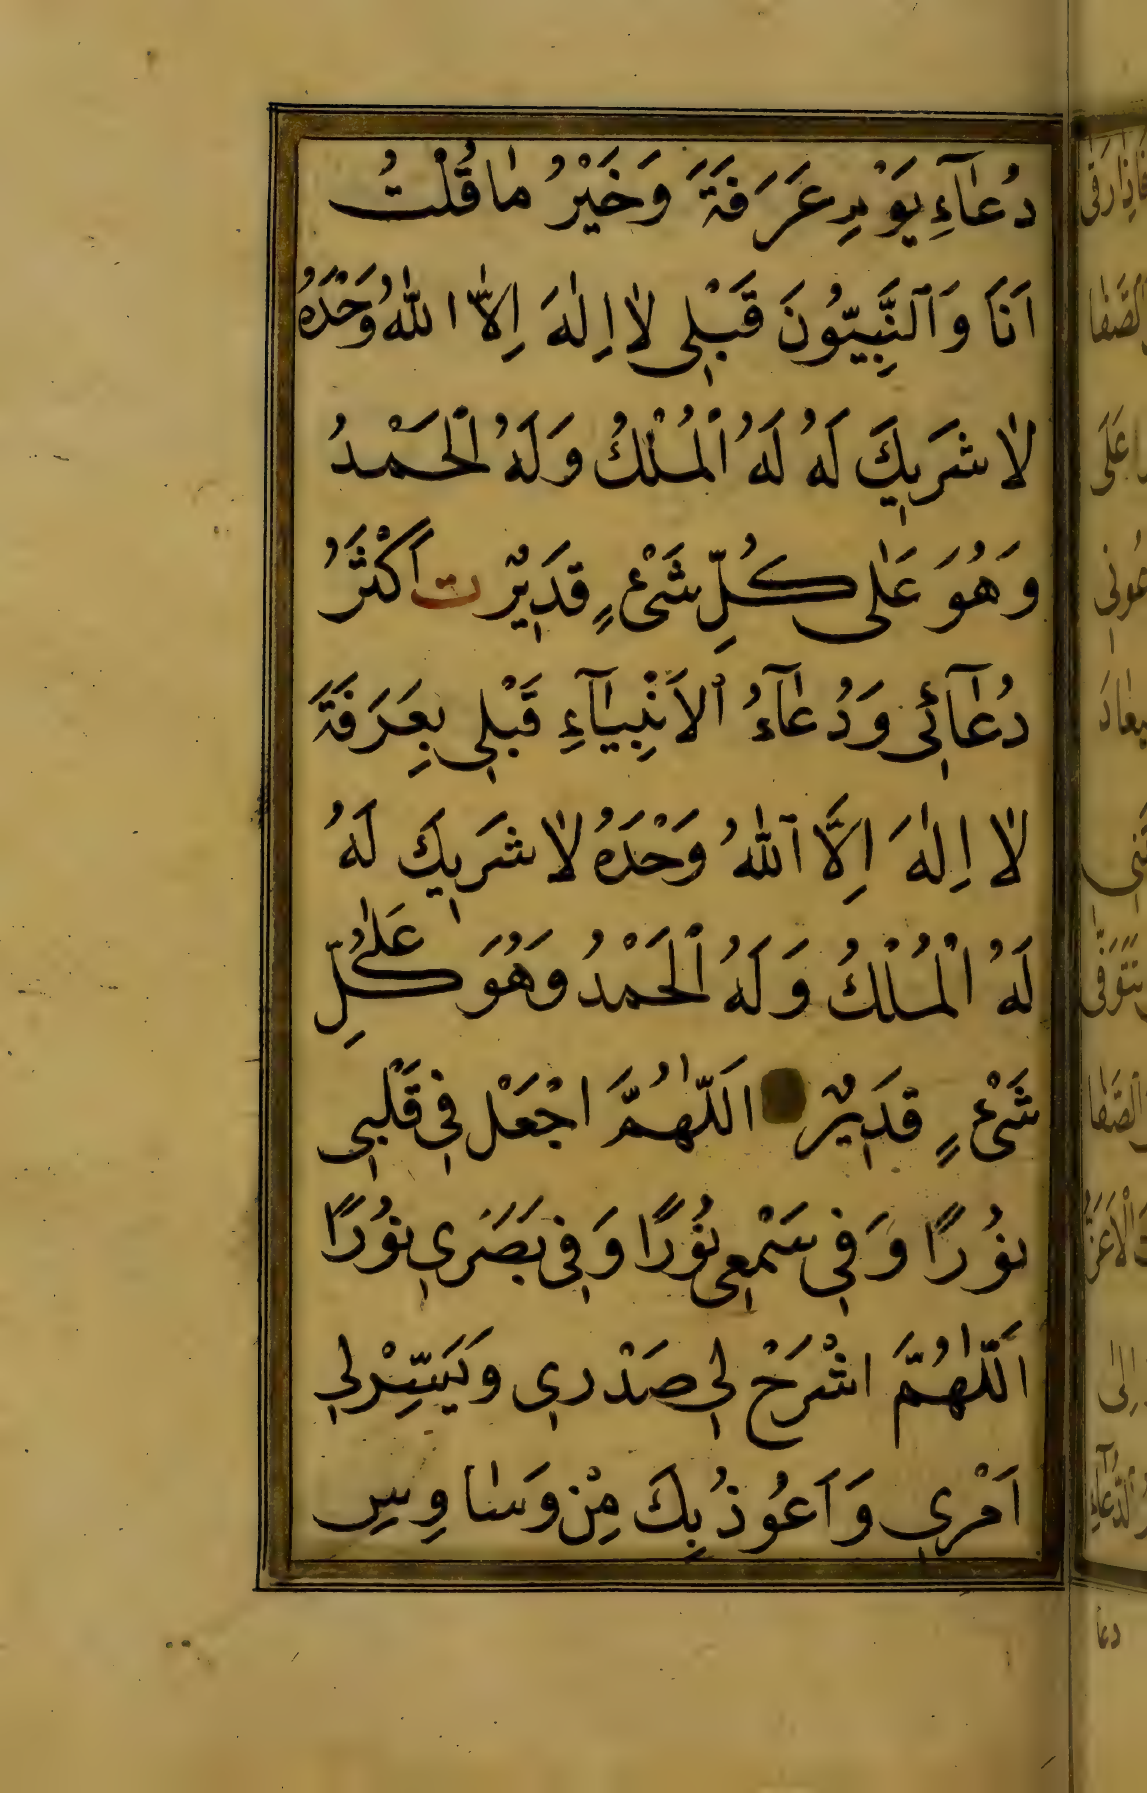 دُعَآءِ يَوْمِ عَرَفَةَ وَخَيْرُ مَا قُلْتُ
اَنَا وَالنَّبِيُّونَ قَبْلِي لَا اِلٰهَ اِلَّا اللّٰهُ وَحْدَهُ
لَا شَرِيكَ لَهُ لَهُ الْمُلْكُ وَلَهُ الْحَمْدُ
وَهُوَ عَلٰى كُلِّ شَيْءٍ قَدِيْرٌ ت اَكْثَرُ
دُعَآئِي وَدُعَآءُ الْاَنْبِيَآءِ قَبْلِي بِعَرَفَةَ
لَا اِلٰهَ اِلَّا اللّٰهُ وَحْدَهُ لَا شَرِيكَ لَهُ
لَهُ الْمُلْكُ وَلَهُ الْحَمْدُ وَهُوَ عَلٰى كُلِّ
شَيْءٍ قَدِيْرٌ اَللّٰهُمَّ اجْعَلْ فِي قَلْبِي
نُورًا وَفِي سَمْعِي نُورًا وَفِي بَصَرِي نُورًا
اَللّٰهُمَّ اشْرَحْ لِي صَدْرِي وَيَسِّرْ لِي
اَمْرِي وَاَعُوذُ بِكَ مِنْ وَسَاوِسِ